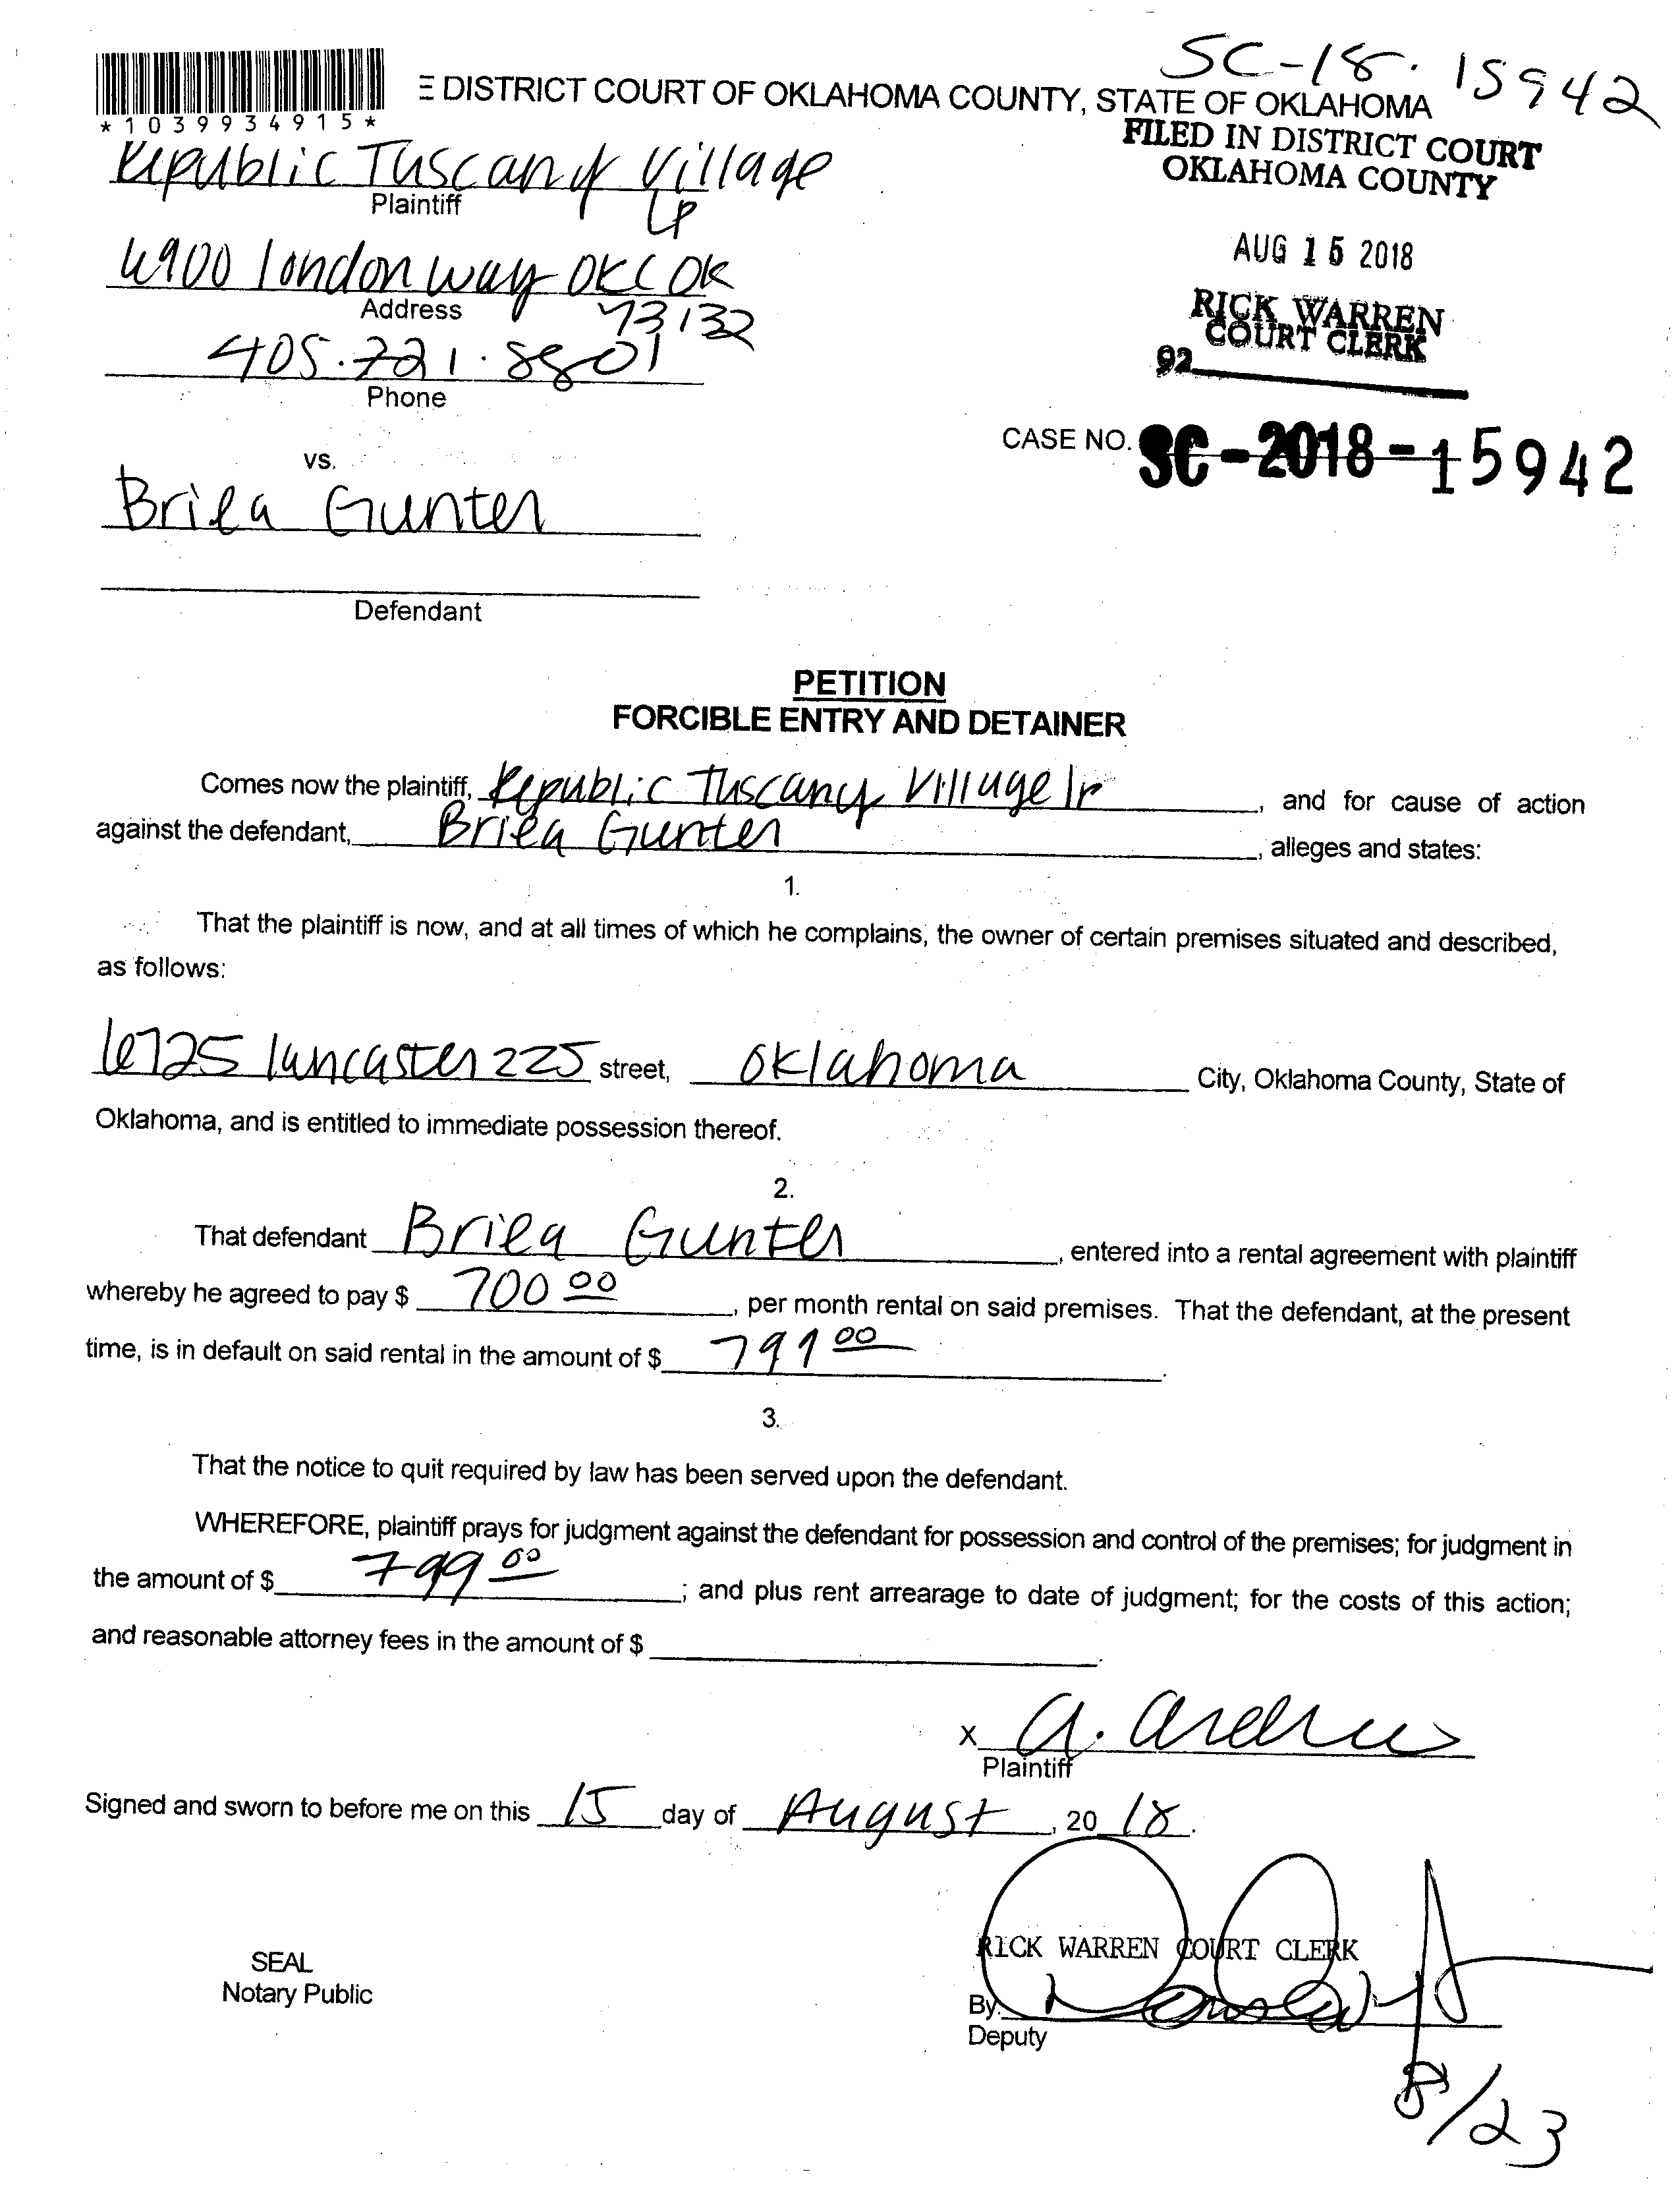 SC-18-15942
E DISTRICT COURT OF OKLAHOMA COUNTY, STATE OF OKLAHOMA
*1039934915*
FILED IN DISTRICT COURT
OKLAHOMA COUNTY
Republic Tuscany Village
LP
Plaintiff
AUG 15 2018
6900 london way OKC OK
73132
Address
RICK WARREN
COURT CLERK
92
405.721.8801
Phone
CASE NO. SC-2018-15942
vs.
Briea Gunter
Defendant
PETITION
FORCIBLE ENTRY AND DETAINER
Comes now the plaintiff, Republic Tuscany Village lp, and for cause of action
against the defendant, Briea Gunter, alleges and states:
1.
That the plaintiff is now, and at all times of which he complains, the owner of certain premises situated and described,
as follows:
6725 lancaster 225 street, Oklahoma City, Oklahoma County, State of
Oklahoma, and is entitled to immediate possession thereof.
2.
That defendant Briea Gunter, entered into a rental agreement with plaintiff
whereby he agreed to pay $ 700 00, per month rental on said premises. That the defendant, at the present
time, is in default on said rental in the amount of $ 799 00.
3.
That the notice to quit required by law has been served upon the defendant.
WHEREFORE, plaintiff prays for judgment against the defendant for possession and control of the premises; for judgment in
the amount of $ 799 00; and plus rent arrearage to date of judgment; for the costs of this action;
and reasonable attorney fees in the amount of $.
X A. Andrews
Plaintiff
Signed and sworn to before me on this 15 day of August, 2018.
RICK WARREN COURT CLERK
SEAL
Notary Public
By
Deputy
8/23